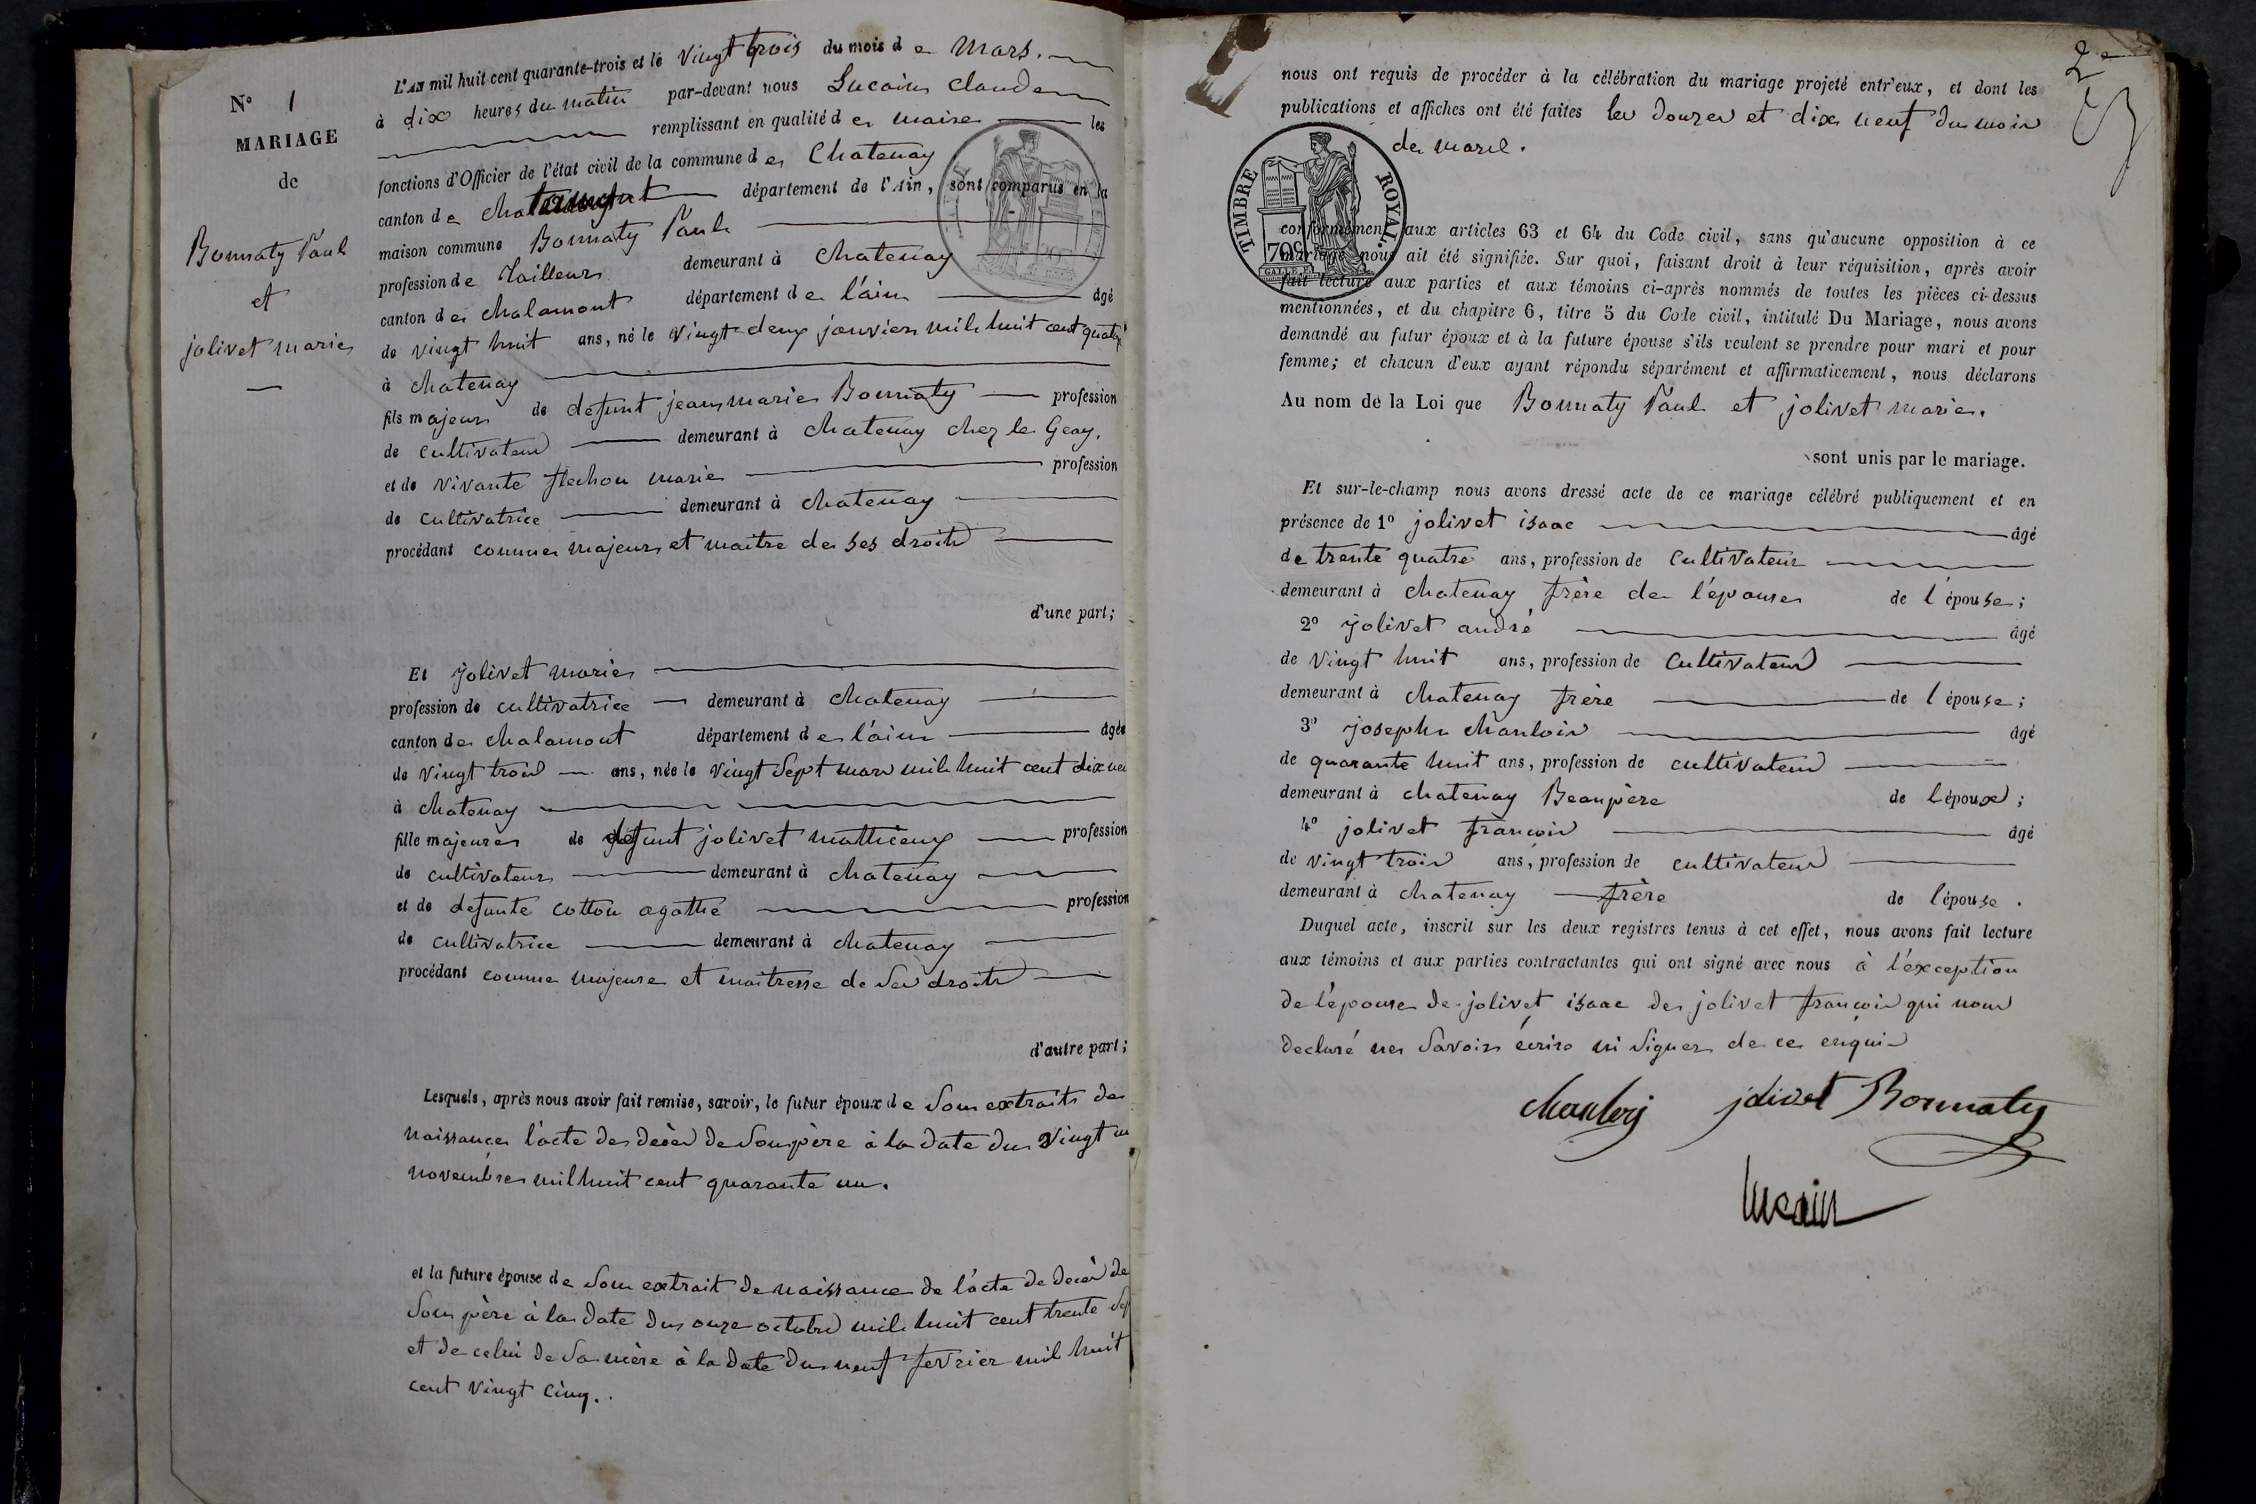 N° 1
MARIAGE
de
Bonnaty Paul
et
jolivet marie
L'AN mil huit cent quarante-trois et le vingt trois du mois de Mars.
à dix heures du matin par-devant nous Lucain Claude
remplissant en qualité de maire les
fonctions d'Officier de l'état civil de la commune de Chatenay
canton de chalamont département de l'Ain, sont comparus en la
maison commune Bonnaty Paul
profession de Tailleur demeurant à Chatenay
canton de chalamont département de l'ain âgé
de vingt huit ans, né le vingt deux janvier mil huit cent quatorze
à chatenay
fils majeur de defunt jean marie Bonnaty profession
de cultivateur demeurant à chatenay chez le Geay,
et de vivante flechon marie profession
de cultivatrice demeurant à chatenay
procédant comme majeur et maitre de ses droits
d'une part;
Et jolivet marie
profession de cultivatrice demeurant à chatenay
canton de chalamont département de l'ain âgée
de vingt trois ans, née le vingt sept mars mil huit cent dix neu
à chatenay
fille majeure de defunt jolivet mathieux profession
de cultivateur demeurant à chatenay
et de defunte cotton agathe profession
de cultivatrice demeurant à chatenay
procédant comme majeure et maitresse de ses droits
d'autre part;
Lesquels, après nous avoir fait remise, savoir, le futur époux de son extrait de
naissance l'acte de decès de son père à la date du vingt un
novembre mil huit cent quarante un.
et la future épouse de son extrait de naissance de l'acte de decès de
son père à la date du onze octobre mil huit cent trente sep
et de celui de sa mère à la date du neuf fevrier mil huit
cent vingt cinq.
2e
nous ont requis de procéder à la célébration du mariage projeté entr'eux, et dont les
publications et affiches ont été faites les douze et dix neuf du mois
de mars.
TIMBRE ROYAL.
70c
conformément aux articles 63 et 64 du Code civil, sans qu'aucune opposition à ce
mariage nous ait été signifiée. Sur quoi, faisant droit à leur réquisition, après avoir
fait lecture aux parties et aux témoins ci-après nommés de toutes les pièces ci-dessus
mentionnées, et du chapitre 6, titre 5 du Code civil, intitulé Du Mariage, nous avons
demandé au futur époux et à la future épouse s'ils veulent se prendre pour mari et pour
femme; et chacun d'eux ayant répondu séparément et affirmativement, nous déclarons
Au nom de la Loi que Bonnaty Paul et jolivet marie.
sont unis par le mariage.
Et sur-le-champ nous avons dressé acte de ce mariage célébré publiquement et en
présence de 1° jolivet isaac âgé
de trente quatre ans, profession de cultivateur
demeurant à chatenay frère de l'épouse de l'épouse;
2° jolivet andré âgé
de vingt huit ans, profession de cultivateur
demeurant à chatenay frère de l'épouse;
3° joseph chanloir âgé
de quarante huit ans, profession de cultivateur
demeurant à chatenay Beaupère de l'époux;
4° jolivet françois âgé
de vingt trois ans, profession de cultivateur
demeurant à chatenay frère de l'épouse.
Duquel acte, inscrit sur les deux registres tenus à cet effet, nous avons fait lecture
aux témoins et aux parties contractantes qui ont signé avec nous à l'exception
de l'épouse de jolivet isaac de jolivet françois qui nous
declaré ne savoir écrire ni signer de ce enquis
jolivet Bonnaty
lucain